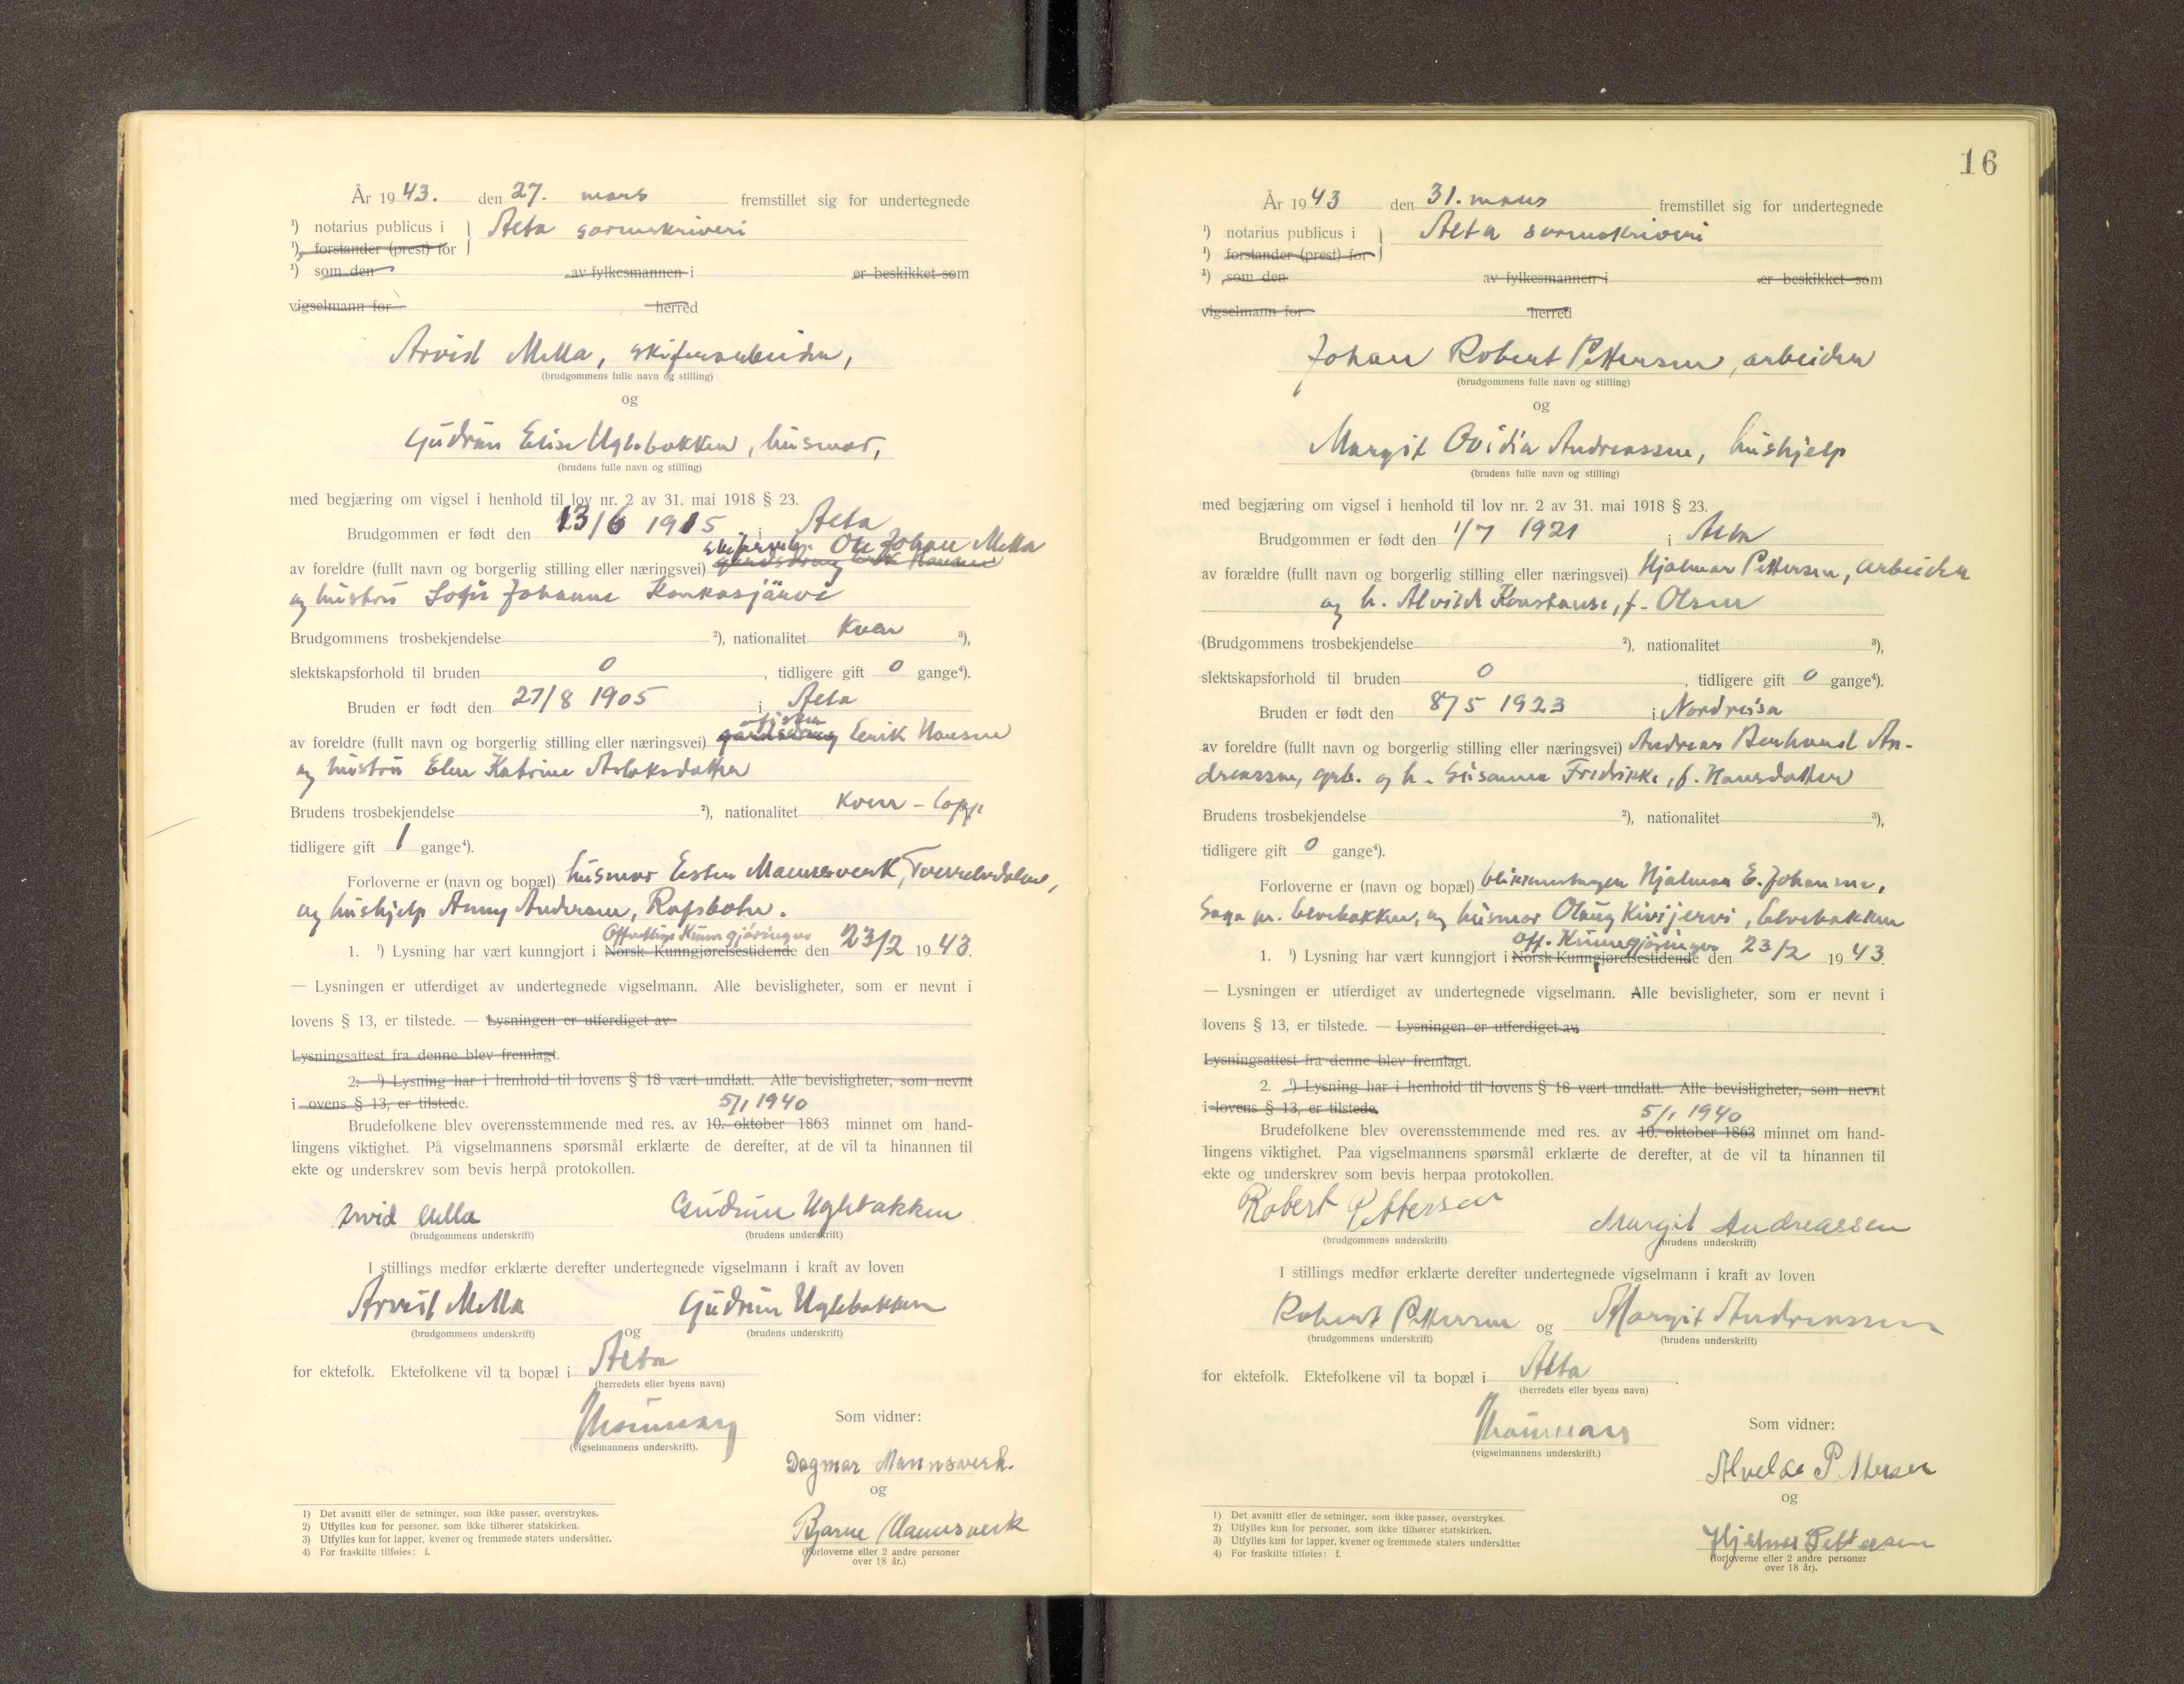 År 1943. den 27. mars fremstillet sig for undertegnede
¹) notarius publicus i } Alta sorenskriveri
¹) forstander (prest) for
¹) som den av fylkesmannen i er beskikket som
vigselmann for herred
Arvid Mella, skiferarbeider,
(brudgommens fulle navn og stilling)
og
Gudrun Elise Uglebakken, husmor,
(brudens fulle navn og stilling)
med begjæring om vigsel i henhold til lov nr. 2 av 31. mai 1918 § 23.
Brudgommen er født den 13/6 1915 i Alta
skiferarb. Ole Johan Mella
av foreldre (fullt navn og borgerlig stilling eller næringsvei) gårdsdreng Erik Hansen
og hustru Sofie Johanne Konkasjärvi
Brudgommens trosbekjendelse ²), nationalitet kven ³),
slektskapsforhold til bruden 0, tidligere gift 0 gange⁴).
Bruden er født den 27/8 1905 i Alta
av foreldre (fullt navn og borgerlig stilling eller næringsvei) gårdsdreng Henrik Hansen
og hustru Elen Katrine Aslaksdatter
Brudens trosbekjendelse ²), nationalitet kven - lapp
tidligere gift 1 gange⁴).
Forloverne er (navn og bopæl) husmor Ester Mannsverk, Tverrelvdalen,
og hushjelp Anny Andersen, Rafsbotn.
Offentlige Kunngjøringer
1. ¹) Lysning har vært kunngjort i Norsk Kunngjørelsestidende den 23/2 1943.
— Lysningen er utferdiget av undertegnede vigselmann. Alle bevisligheter, som er nevnt i
lovens § 13, er tilstede. — Lysningen er utferdiget av
Lysningsattest fra denne blev fremlagt.
2. ¹) Lysning har i henhold til lovens § 18 vært undlatt. Alle bevisligheter, som nevnt
i ovens § 13, er tilstede.
5/1 1940
Brudefolkene blev overensstemmende med res. av 10. oktober 1863 minnet om hand-
lingens viktighet. På vigselmannens spørsmål erklærte de derefter, at de vil ta hinannen til
ekte og underskrev som bevis herpå protokollen.
Arvid Mella Gudrun Uglebakken
(brudgommens underskrift) (brudens underskrift)
I stillings medfør erklærte derefter undertegnede vigselmann i kraft av loven
Arvid Mella og Gudrun Uglebakken
(brudgommens underskrift) (brudens underskrift)
for ektefolk. Ektefolkene vil ta bopæl i Alta
(herredets eller byens navn)
(vigselmannens underskrift).
Som vidner:
Dagmar Mannsverk.
og
Bjarne Mannsverk
(Forloverne eller 2 andre personer
over 18 år.)
1) Det avsnitt eller de setninger, som ikke passer, overstrykes.
2) Utfylles kun for personer, som ikke tilhører statskirken.
3) Utfylles kun for lapper, kvener og fremmede staters undersåtter.
4) For fraskilte tilføies: f.
16
År 1943 den 31. mars fremstillet sig for undertegnede
¹) notarius publicus i } Alta sorenskriveri
¹) forstander (prest) for
¹) som den av fylkesmannen i er beskikket som
vigselmann for herred
Johan Robert Pettersen, arbeider
(brudgommens fulle navn og stilling)
og
Margit Ovidia Andreassen, hushjelp
(brudens fulle navn og stilling)
med begjæring om vigsel i henhold til lov nr. 2 av 31. mai 1918 § 23.
Brudgommen er født den 1/7 1921 i Alta
av forældre (fullt navn og borgerlig stilling eller næringsvei) Hjalmar Pettersen, arbeider
og h. Alvilde Konstanse, f. Olsen
(Brudgommens trosbekjendelse ²), nationalitet ³),
slektskapsforhold til bruden 0, tidligere gift 0 gange⁴).
Bruden er født den 8/5 1923 i Nordreisa
av foreldre (fullt navn og borgerlig stilling eller næringsvei) Andreas Berhard An-
dreassen, grb. og h. Susanna Fredrikke, f. Hansdatter
Brudens trosbekjendelse ²), nationalitet ³),
tidligere gift 0 gange⁴).
Forloverne er (navn og bopæl) Hjalmar E. Johansen,
Saga pr. Elvebakken, og husmor Olaug Kivijervi, Elvebakken
Off. Kunngjøringer
1. ¹) Lysning har vært kunngjort i Norsk Kunngjørelsestidende den 23/2 1943.
— Lysningen er utferdiget av undertegnede vigselmann. Alle bevisligheter, som er nevnt i
lovens § 13, er tilstede. — Lysningen er utferdiget av
Lysningsattest fra denne blev fremlagt.
2. ¹) Lysning har i henhold til lovens § 18 vært undlatt. Alle bevisligheter, som nevnt
i lovens § 13, er tilstede.
5/1 1940
Brudefolkene blev overensstemmende med res. av 10. oktober 1863 minnet om hand-
lingens viktighet. Paa vigselmannens spørsmål erklærte de derefter, at de vil ta hinannen til
ekte og underskrev som bevis herpaa protokollen.
Robert Pettersen Margit Andreassen
(brudgommens underskrift) (brudens underskrift)
I stillings medfør erklærte derefter undertegnede vigselmann i kraft av loven
Robert Pettersen og Margit Andreassen
(brudgommens underskrift) (brudens underskrift)
for ektefolk. Ektefolkene vil ta bopæl i Alta.
(herredets eller byens navn)
(vigselmannens underskrift.)
Som vidner:
Alvilde Pettersen
og
Hjalmar Pettersen
(forloverne eller 2 andre personer
over 18 år).
1) Det avsnitt eller de setninger, som ikke passer, overstrykes.
2) Utfylles kun for personer, som ikke tilhører statskirken.
3) Utfylles kun for lapper, kvener og fremmede staters undersåtter
4) For fraskilte tilføies: f.